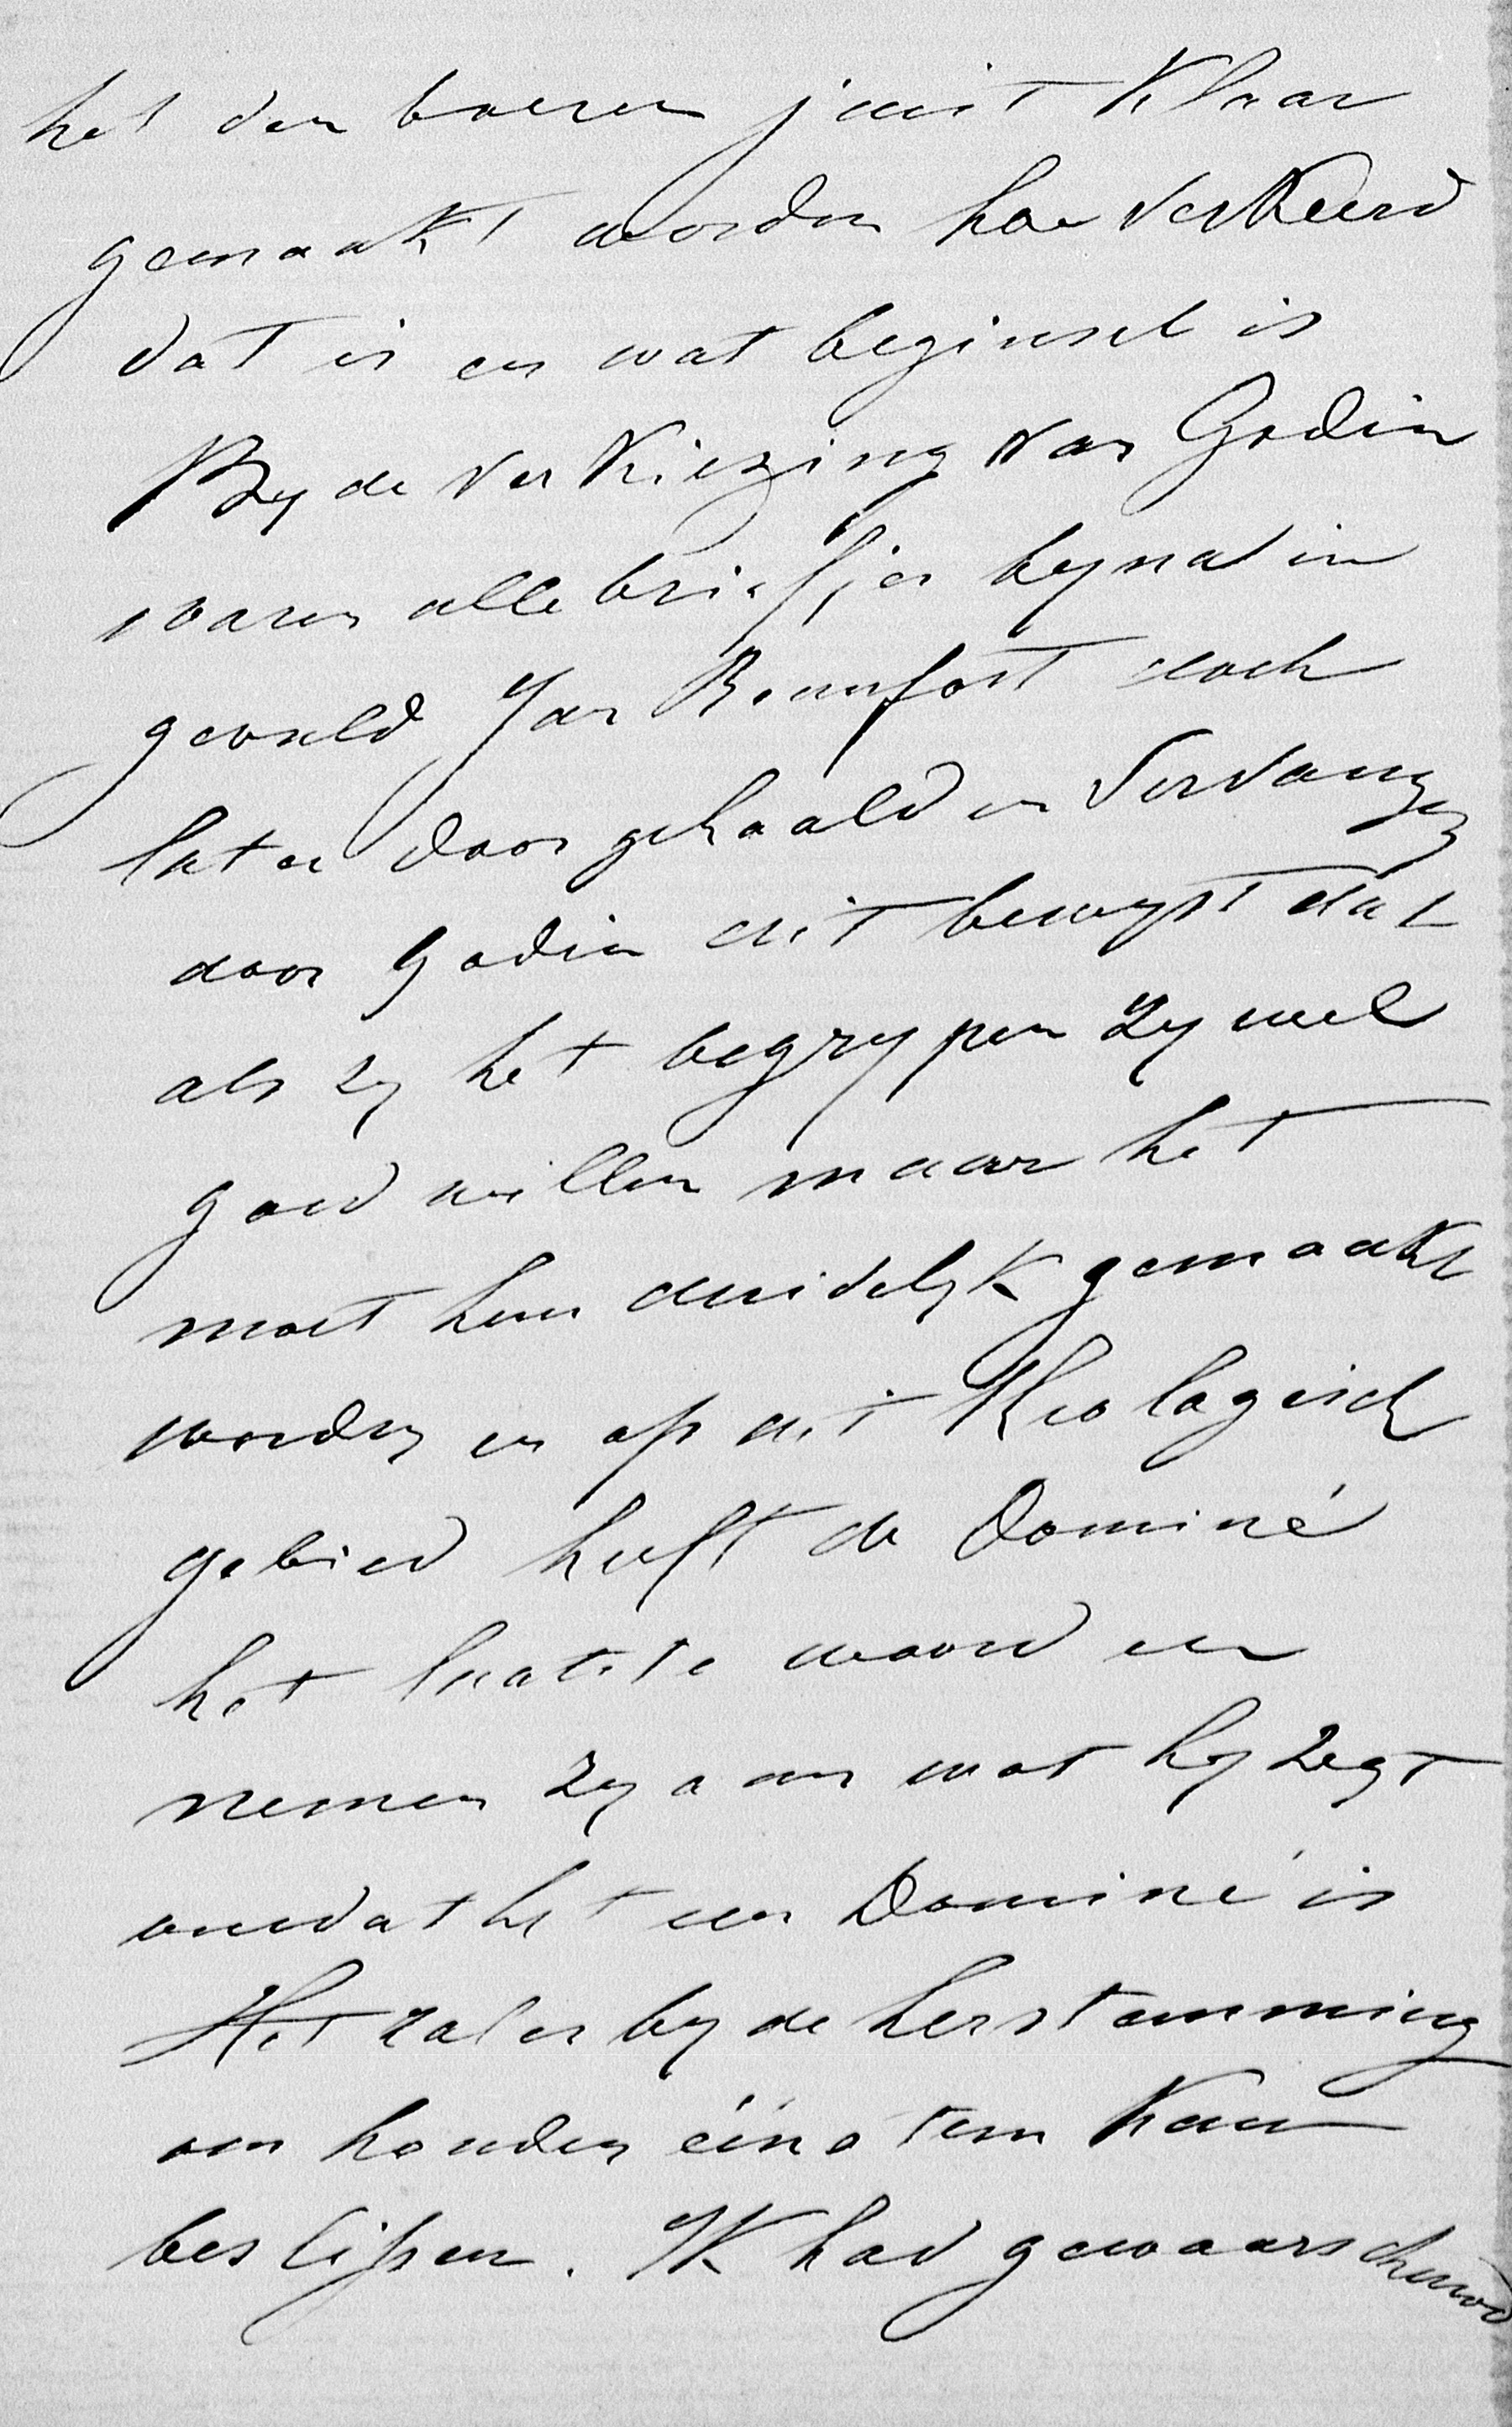 het den boeren juist klaar
gemaakt worden hoe verkeerd
dat is en wat beginsel is
By de verkiezing van Godin
waren alle briefjes byna in
gevuld Jan Beaufort doch
later doorgehaald en vervangen
door Godin dit bewyst dat
als zy het begrypen zy wel
goed willen maar het
moet hun duidelyk gemaakt
worden en op dit Theologisch
gebied heeft de Dominé
het laatste woord en
nemen zy aan wat hy zegt
omdat het een Dominé is
Het zal er by de herstemming
om houden één stem kan
beslissen. Ik had gewaarschuwd